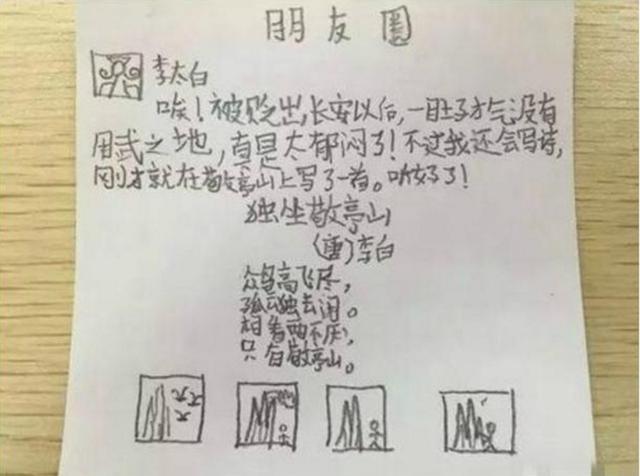 朋友圈
李太白
唉！被贬出长安以后，一肚子才气没有
用武之地，真是太郁闷了！不过我还会写诗，
刚才就在敬亭山上写了一首。听好了！
独坐敬亭山
（唐）李白
众鸟高飞尽，
孤云独去闲。
相看两不厌，
只有敬亭山。